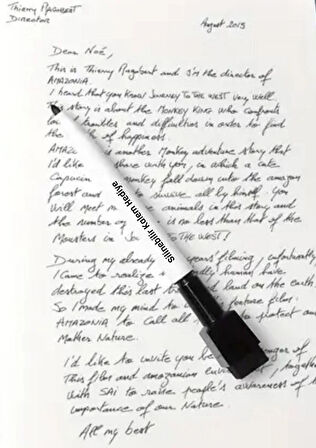 Thierry MAGOBERT
DIRECTOR
August 2015
Dear Noé,
This is Thierry Magobert and I'm the director of
AMAZONIA.
I heard that you know JOURNEY TO THE WEST very well.
story is about the MONKEY KING who confronts
troubles and difficulties in order to find
of happiness.
another Monkey adventure story that
I'd like share with you, in which a cute
Capucin monkey fall down into the amazon
forest survive all by himself. You
Will meet animals in this story, and
the number is no less than that of the
Monsters in TO THE WEST!
During my already years filming, unfortunately
I came to realize human have
destroyed this last land on the earth.
So I made my mind to feature film:
AMAZONIA to call all to protect our
Mother Nature.
I'd like to invite you
This film and amazonian together
With SAI to raise people's awareness of
importance of our Nature.
All my best
Silinebilir Kalem Hediye